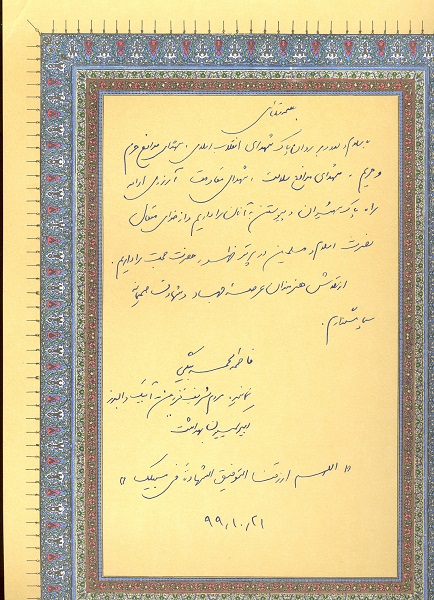 بسمه تعالی
با سلام و درود بر روان پاک شهدای انقلاب اسلامی، شهدای مدافع حرم
و حریم، شهدای مدافع سلامت، شهدای مقاومت آرزوی ادامه
راه پاک شهیدان و پیوستن به آنان را داریم و از خدای متعال
نصرت اسلام و مسلمین در پرتو ظهور حضرت حجت را داریم.
از تلاش هنرمندان عرصه جهاد و شهادت صمیمانه
سپاسگزارم.
فاطمه محمدبیگی
نماینده مردم شریف قزوین، آبیک و البرز
کمیسیون بهداشت
«اللهم ارزقنا التوفیق الشهادة فی سبیلک»
۹۹،۱۰،۲۱